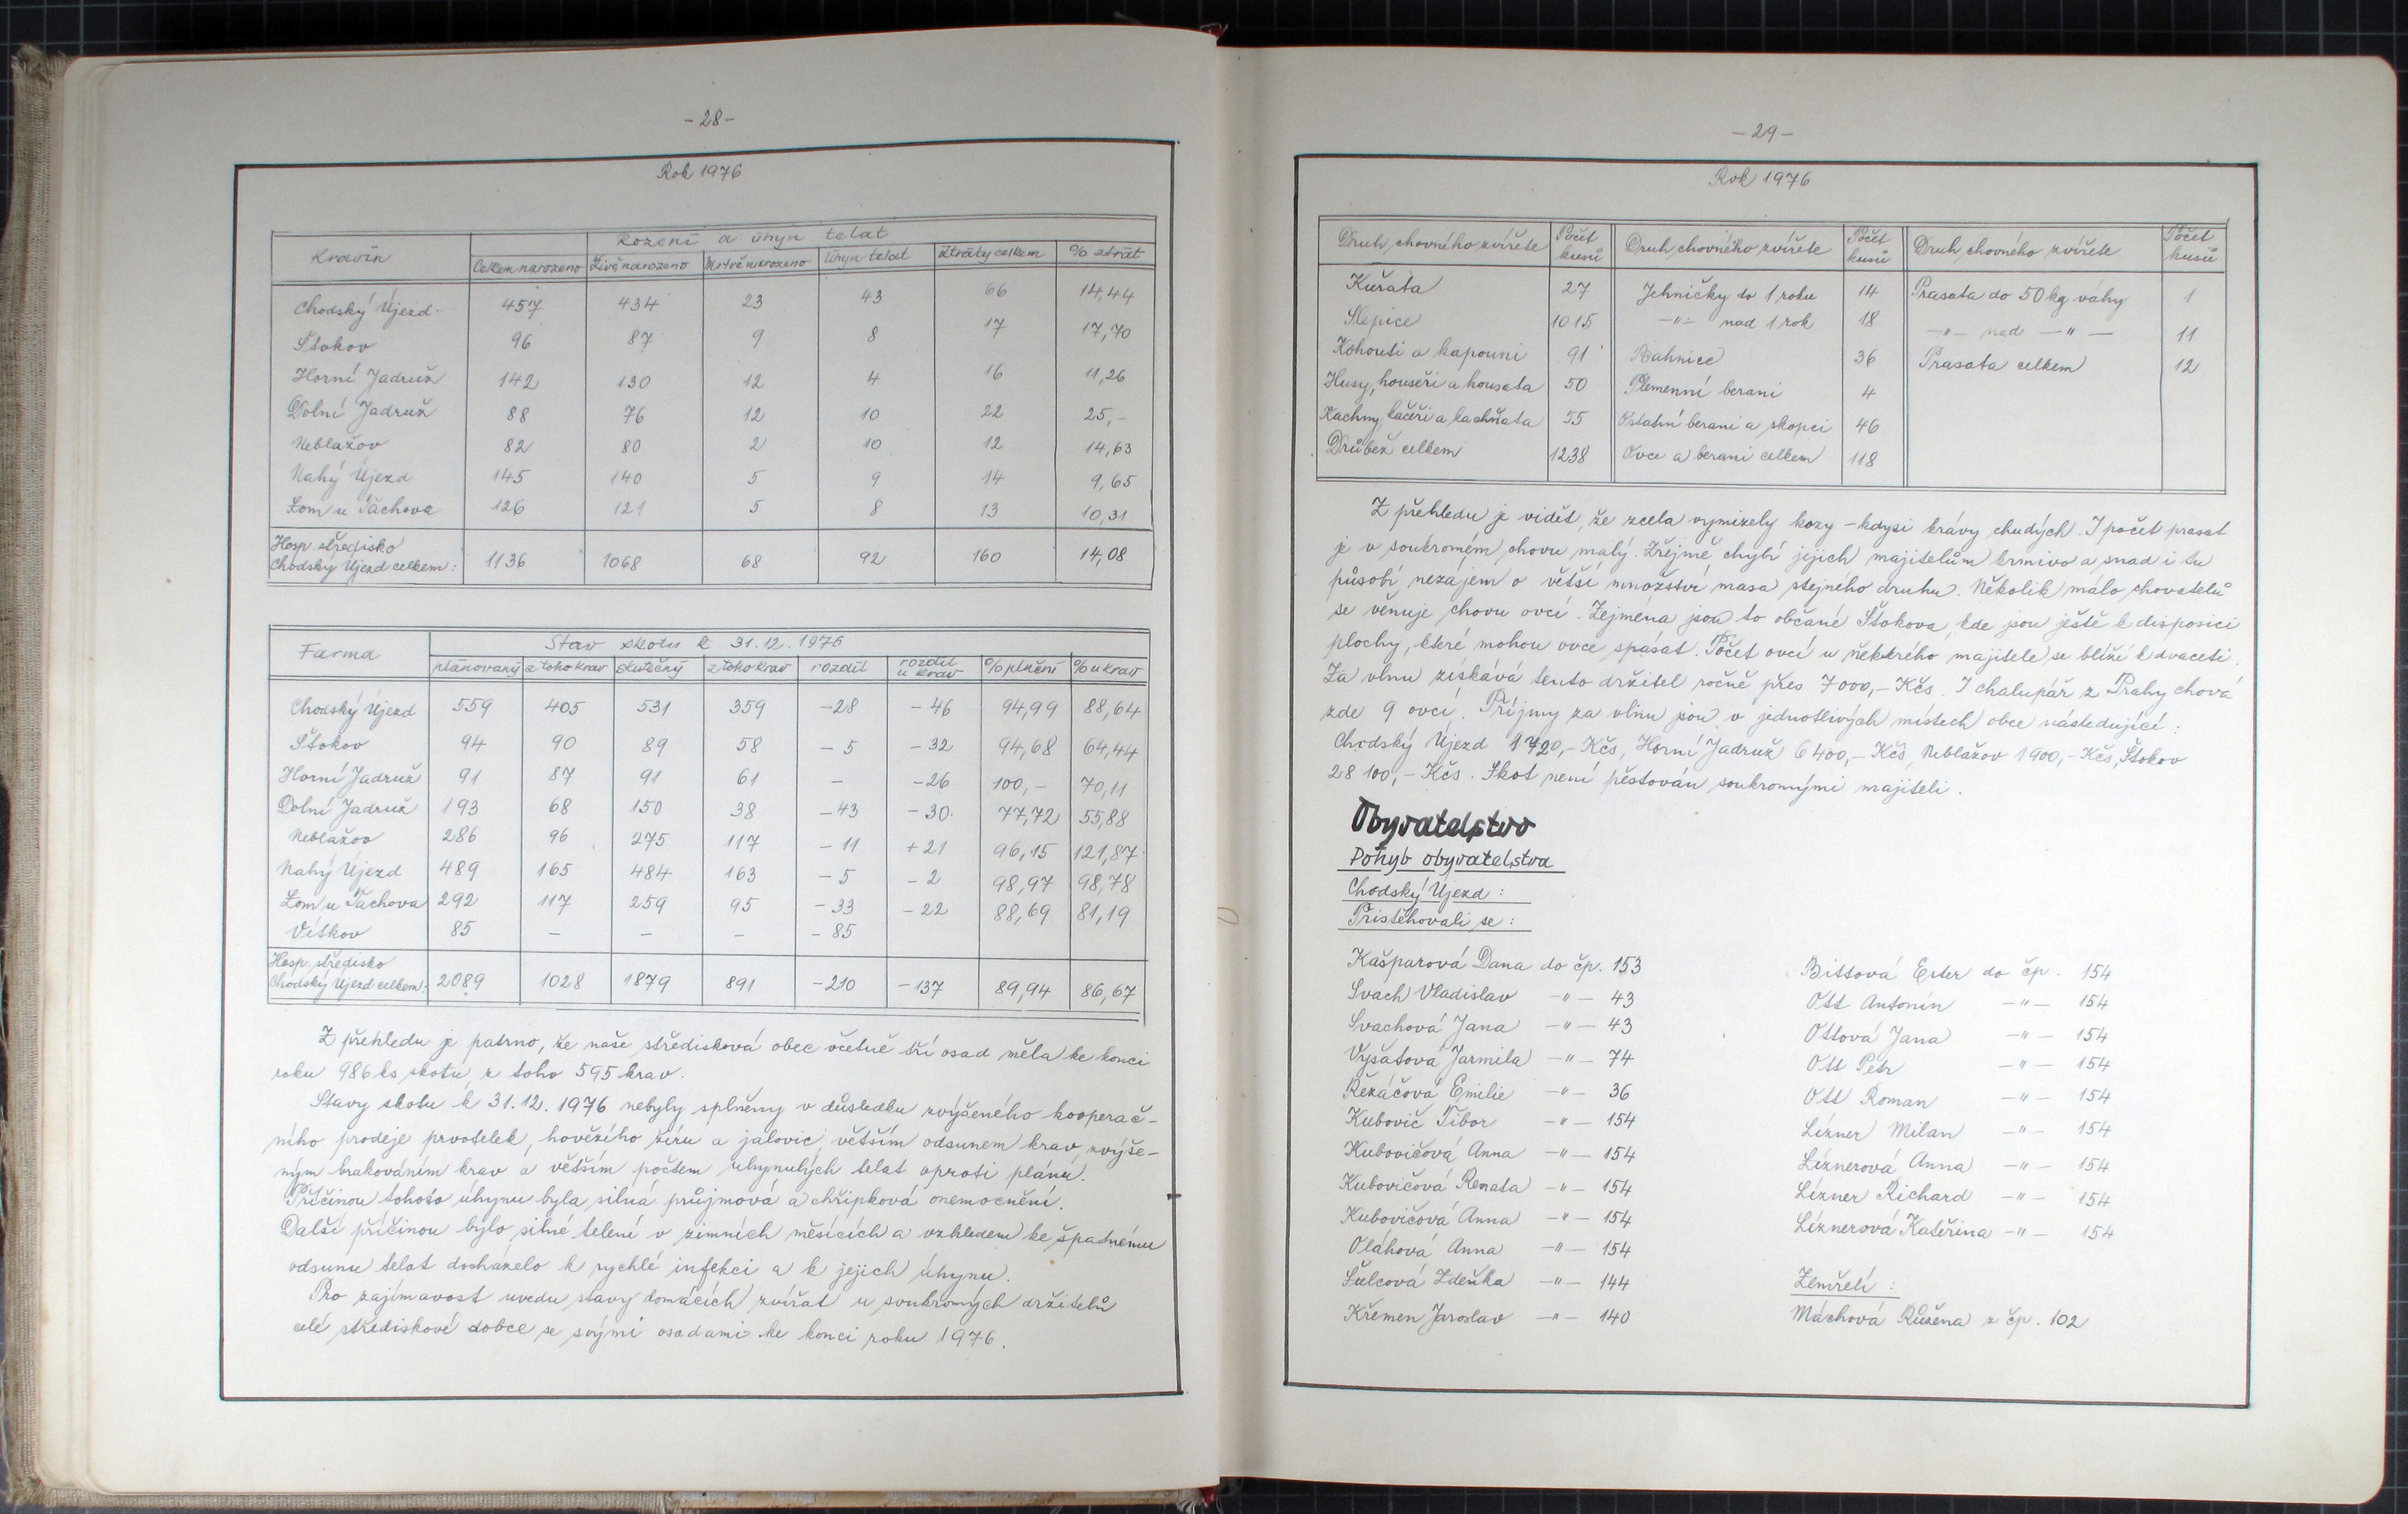 - 28 -
Rok 1976
Kravín | Rození a úhyn telat
Celkem narozeno | Živě narozeno | Mrtvě narozeno | Úhyn telat | Ztráty celkem | % ztrát
Chodský Újezd | 457 | 434 | 23 | 43 | 66 | 14,44
Štokov | 96 | 87 | 9 | 8 | 17 | 17,70
Horní Jadruž | 142 | 130 | 12 | 4 | 16 | 11,26
Dolní Jadruž | 88 | 76 | 12 | 10 | 22 | 25,-
Neblažov | 82 | 80 | 2 | 10 | 12 | 14,63
Nahý Újezd | 145 | 140 | 5 | 9 | 14 | 9,65
Lom u Tachova | 126 | 121 | 5 | 8 | 13 | 10,31
Hosp. středisko
Chodský Újezd celkem: | 1136 | 1068 | 68 | 92 | 160 | 14,08
Farma | Stav skotu k 31.12.1976
plánovaný | z toho krav | skutečný | z toho krav | rozdíl | rozdíl u krav | % plnění | % u krav
Chodský Újezd | 559 | 405 | 531 | 359 | -28 | -46 | 94,99 | 88,64
Štokov | 94 | 90 | 89 | 58 | -5 | -32 | 94,68 | 64,44
Horní Jadruž | 91 | 87 | 91 | 61 | - | -26 | 100,- | 70,11
Dolní Jadruž | 193 | 68 | 150 | 38 | -43 | -30 | 77,72 | 55,88
Neblažov | 286 | 96 | 275 | 117 | -11 | +21 | 96,15 | 121,87
Nahý Újezd | 489 | 165 | 484 | 163 | -5 | -2 | 98,97 | 98,78
Lom u Tachova | 292 | 117 | 259 | 95 | -33 | -22 | 88,69 | 81,19
Vítkov | 85 | - | - | - | -85
Hosp. středisko
Chodský Újezd celkem: | 2089 | 1028 | 1879 | 891 | -210 | -137 | 89,94 | 86,67
Z přehledu je patrno, že naše středisková obec včetně tří osad měla ke konci
roku 986 ks skotu, z toho 595 krav.
Stavy skotu k 31.12.1976 nebyly splněny v důsledku zvýšeného kooperač-
ního prodeje prvotelek, hovězího žíru a jalovic, větším odsunem krav, zvýše-
ným brakováním krav a větším počtem uhynulých telat oproti plánu.
Příčinou tohoto úhynu byla silná průjmová a chřipková onemocnění.
Další příčinou bylo silné telení v zimních měsících a vzhledem ke špatnému
odsunu telat docházelo k rychlé infekci a k jejich úhynu.
Pro zajímavost uvedu stavy domácích zvířat u soukromých držitelů
celé střediskové obce se svými osadami ke konci roku 1976.
- 29 -
Rok 1976
Druh chovného zvířete | Počet kusů | Druh chovného zvířete | Počet kusů | Druh chovného zvířete | Počet kusů
Kuřata | 27 | Jehničky do 1 roku | 14 | Prasata do 50 kg váhy | 1
Slepice | 1015 | -"- nad 1 rok | 18 | -"- nad -"- | 11
Kohouti a kapouni | 91 | Bahnice | 36 | Prasata celkem | 12
Husy, houseři a housata | 50 | Plemenní berani | 4
Kachny, kačeři a kachňata | 55 | Ostatní berani a skopci | 46
Drůbež celkem | 1238 | Ovce a berani celkem | 118
Z přehledu je vidět, že zcela vymizely kozy - kdysi krávy chudých. I počet prasat
je v soukromém chovu malý. Zřejmě chybí jejich majitelům krmivo a snad i tu
působí nezájem o větší množství masa stejného druhu. Několik málo chovatelů
se věnuje chovu ovcí. Zejména jsou to občané Štokova, kde jsou ještě k disposici
plochy, které mohou ovce spásat. Počet ovcí u některého majitele se blíží k dvaceti.
Za vlnu získává tento držitel ročně přes 7 000,- Kčs. I chalupář z Prahy chová
zde 9 ovcí. Příjmy za vlnu jsou v jednotlivých místech obce následující:
Chodský Újezd 1 720,- Kčs, Horní Jadruž 6 400,- Kčs, Neblažov 1 900,- Kčs, Štokov
28 100,- Kčs. Skot není pěstován soukromými majiteli.
Obyvatelstvo
Pohyb obyvatelstva
Chodský Újezd:
Přistěhovali se:
Kašparová Dana do čp. 153
Svach Vladislav -"- 43
Svachová Jana -"- 43
Vyšatová Jarmila -"- 74
Řezáčová Emilie -"- 36
Kubovič Tibor -"- 154
Kubovičová Anna -"- 154
Kubovičová Renata -"- 154
Kubovičová Anna -"- 154
Oláhová Anna -"- 154
Šulcová Zdeňka -"- 144
Křemen Jaroslav -"- 140
Bittová Ester do čp. 154
Ott Antonín -"- 154
Ottová Jana -"- 154
Ott Petr -"- 154
Ott Roman -"- 154
Lízner Milan -"- 154
Líznerová Anna -"- 154
Lízner Richard -"- 154
Líznerová Kateřina -"- 154
Zemřelí:
Máchová Růžena z čp. 102